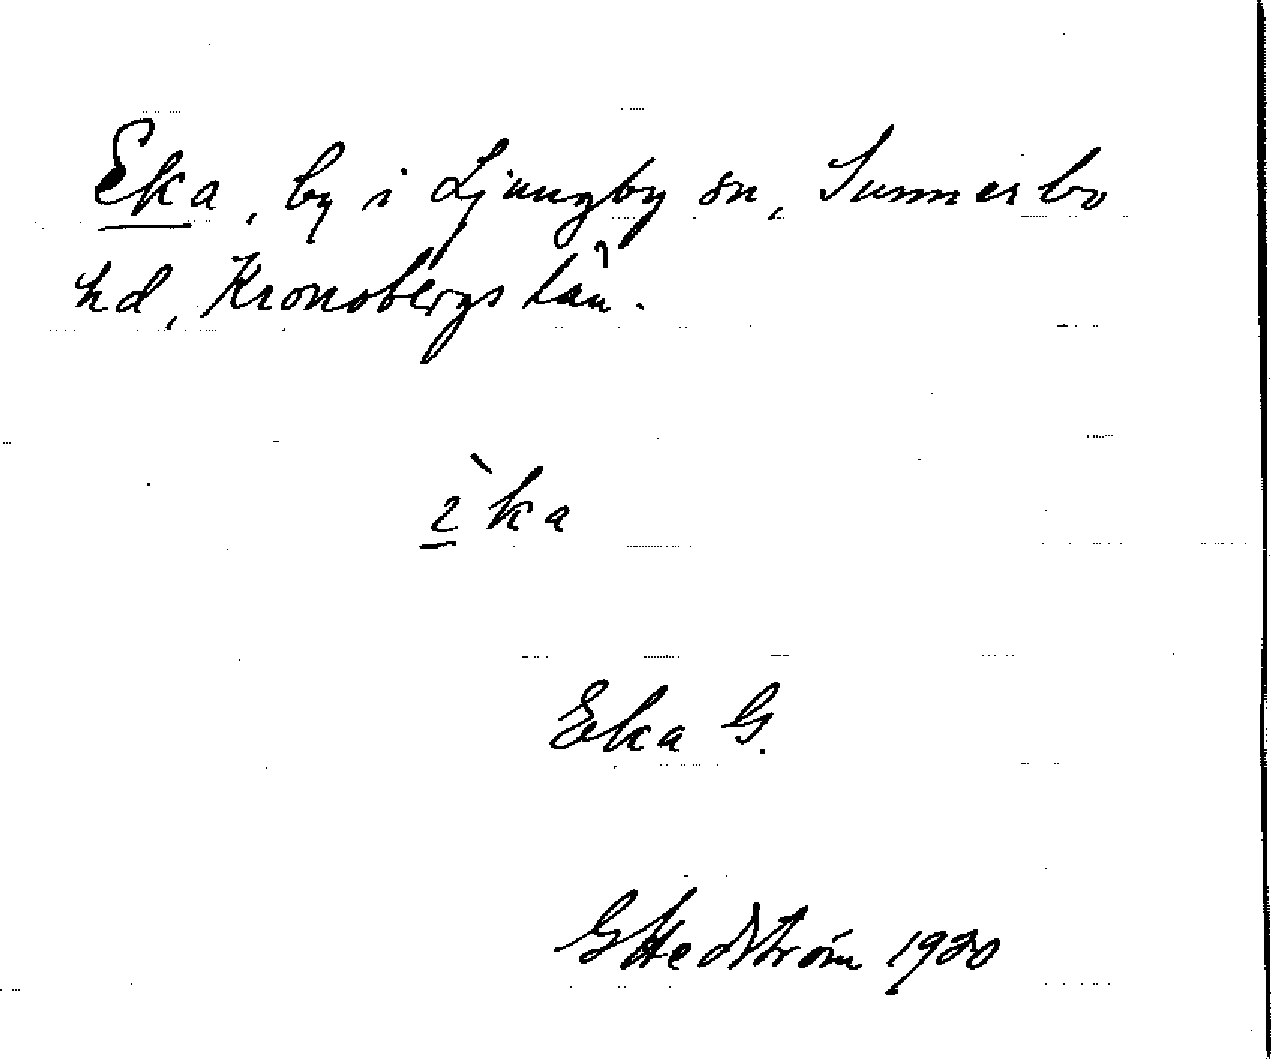 Eka, by i Ljungby sn, Sunnerbo
hd, Kronobergs län.
èka
Eka G.
G Hedström 1930